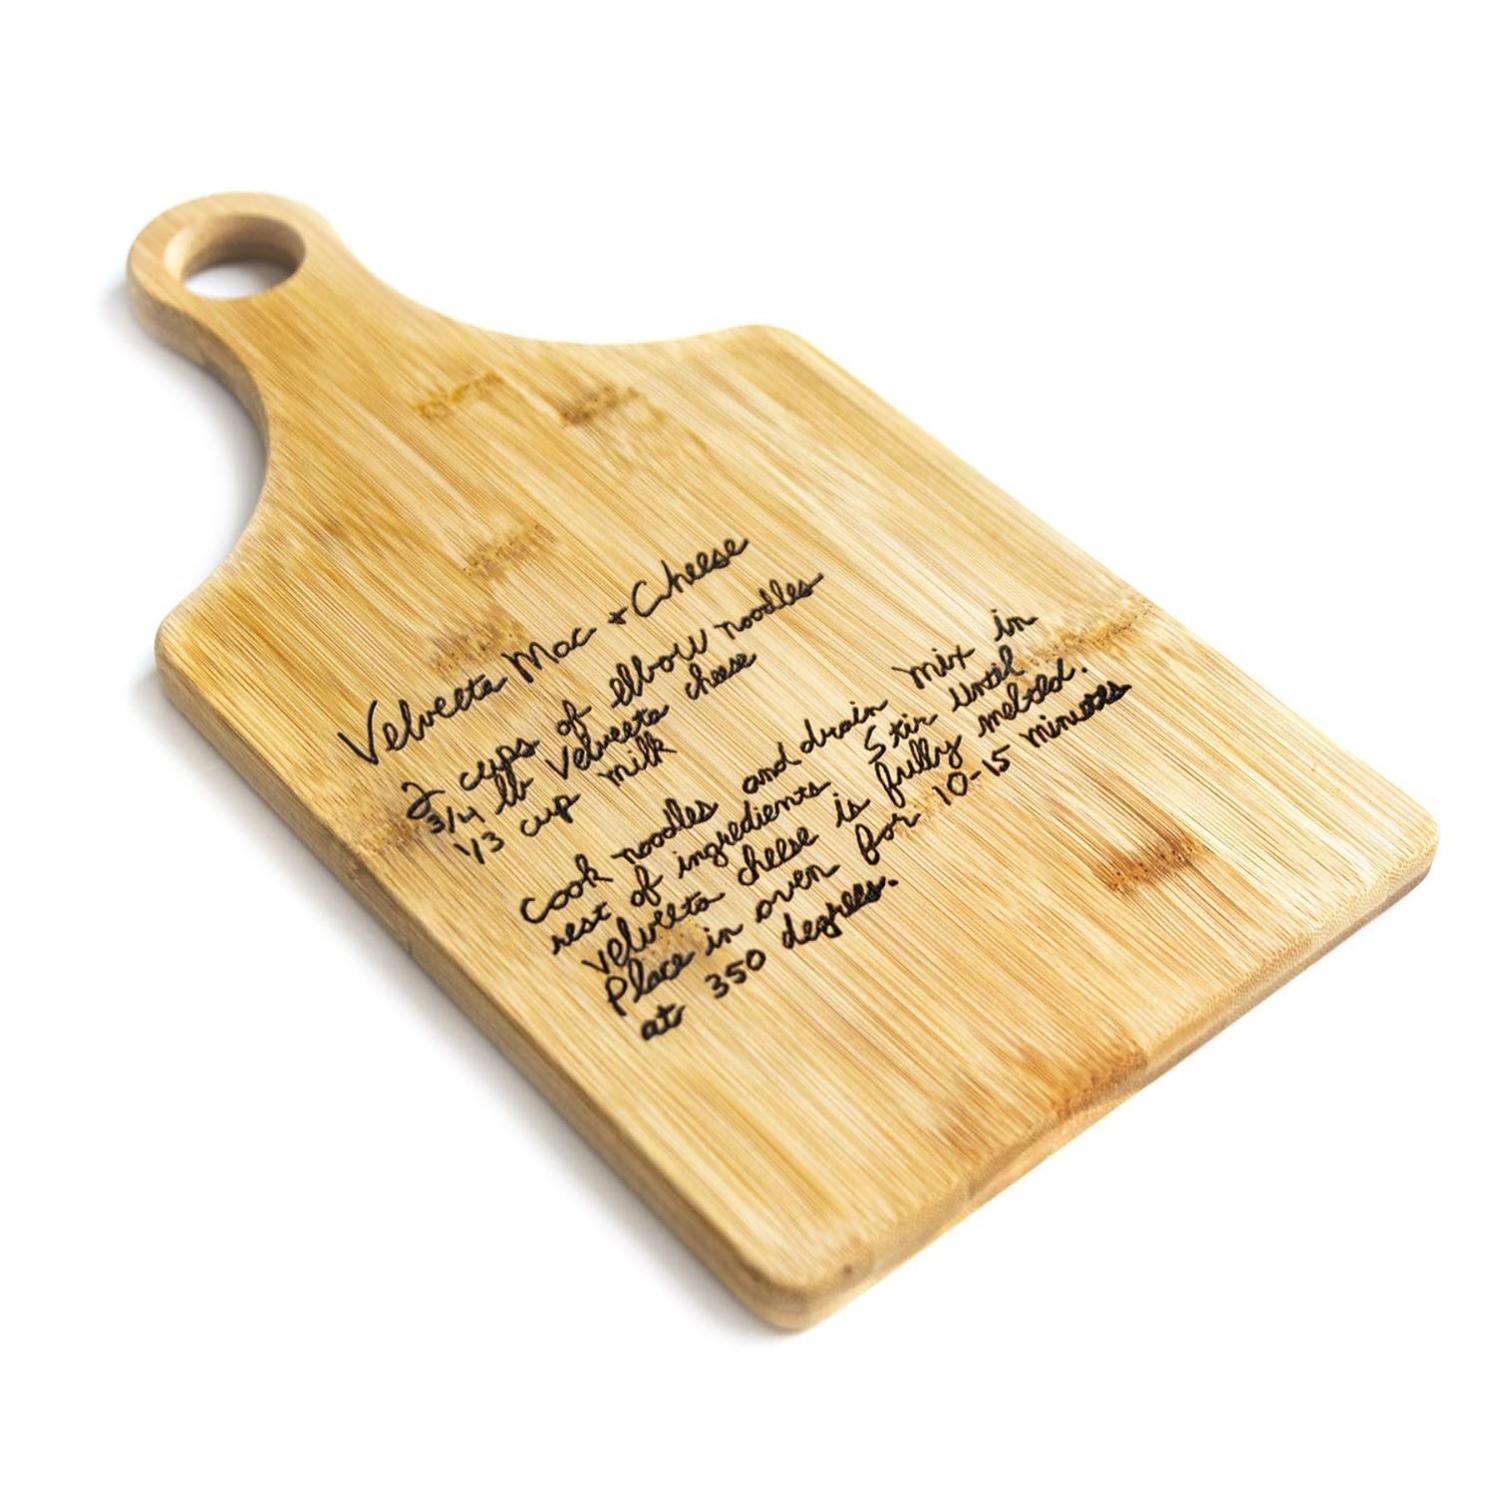 Velveeta Mac + Cheese
2 cups of elbow noodles
3/4 lb Velveeta cheese
1/3 cup milk
Cook noodles and drain mix in
rest of ingredients Stir until
velveeta cheese is fully melted.
Place in oven for 10-15 minutes
at 350 degrees.